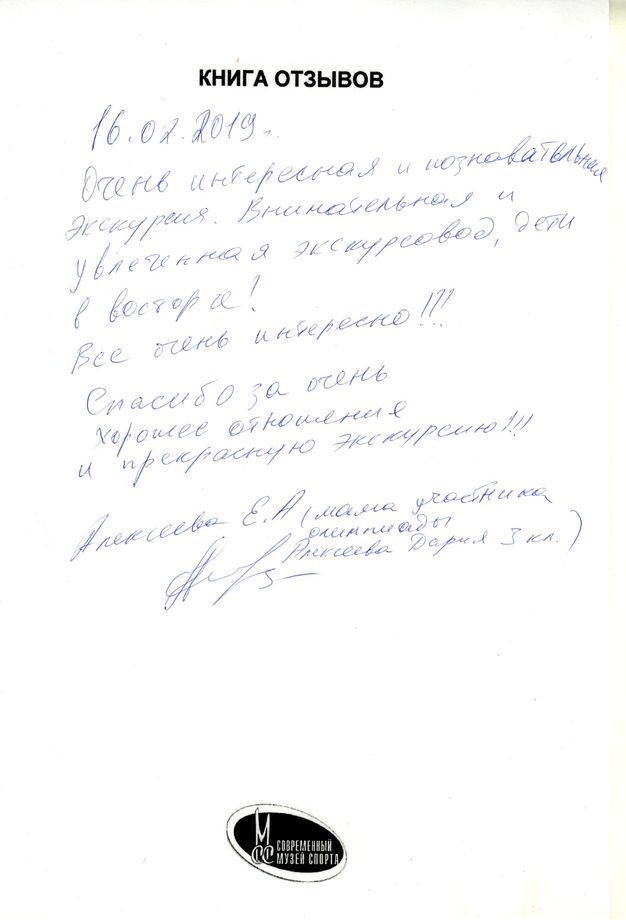 КНИГА ОТЗЫВОВ
16.02.2019г.
Очень интересная и познавательная
экскурсия. Внимательная и
увлеченная экскурсовод, дети
в восторге!
Все очень интересно!!!
Спасибо за очень
хорошее отношения
и прекрасную экскурсию!!!
Алексеева Е.А (мама участника
олимпиады
Алексеева Дария 3 кл.)
М
СС СОВРЕМЕННЫЙ
МУЗЕЙ СПОРТА